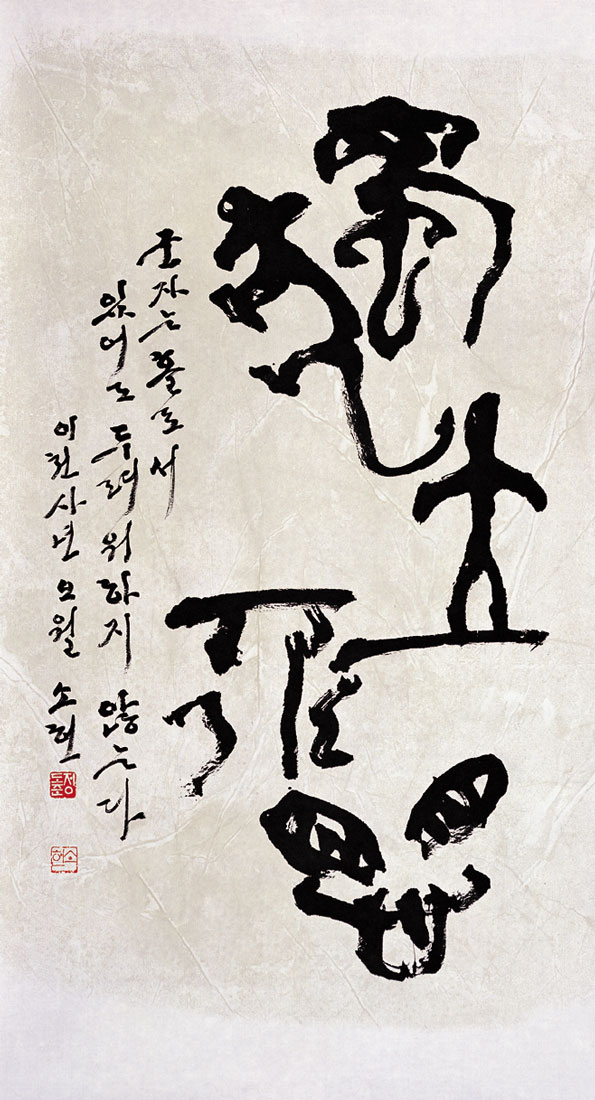 獨立不懼
군자는 홀로 서
있어도 두려워하지 않는다
이천사년 오월 소헌
정도준
소헌